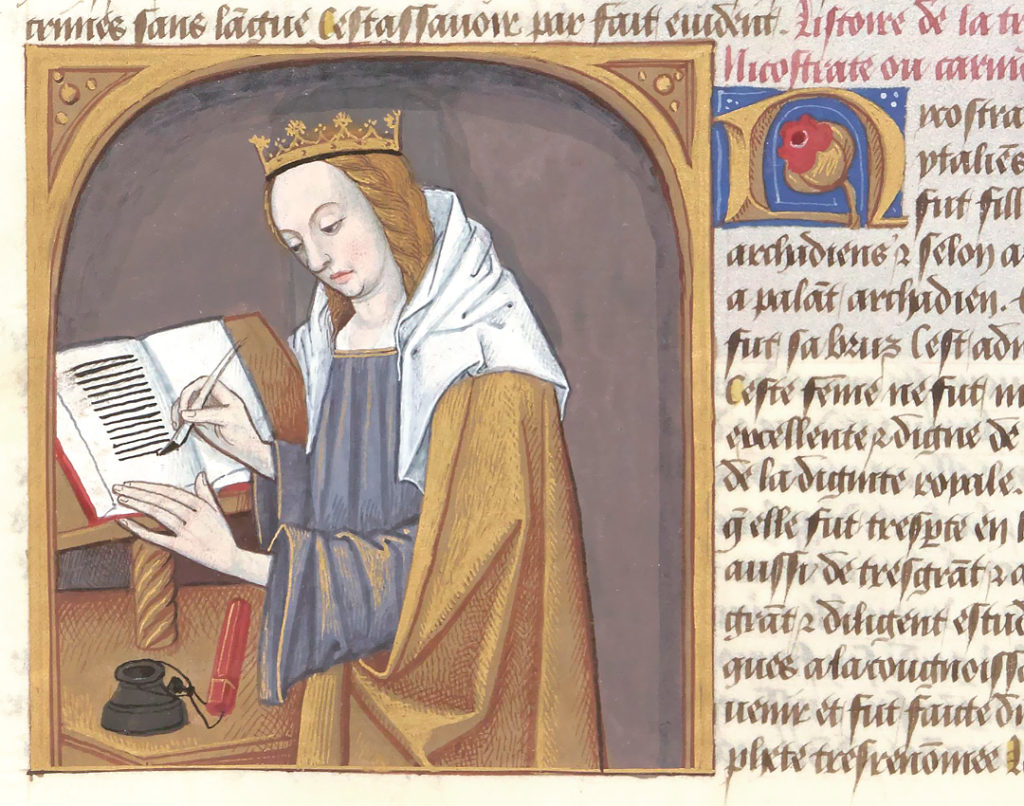 trinees sans lāgue Cestassavoir par fait euidēt. Listoire de la
Nicostrate ou carm
Nycostra
ytaliēs
fut fill
archadiens ⁊ selon a
a palāt archadien.
fut sa bruz Cest adi
Ceste feme ne fut
excellente ⁊ digne de
de la dignite royale.
q̄ elle fut tresp̄te en
aussi de tresgrāt ⁊ a
grāt ⁊ diligent estud
ques a la cougnoiss
uenir et fut faicte
phete tresrenōmee